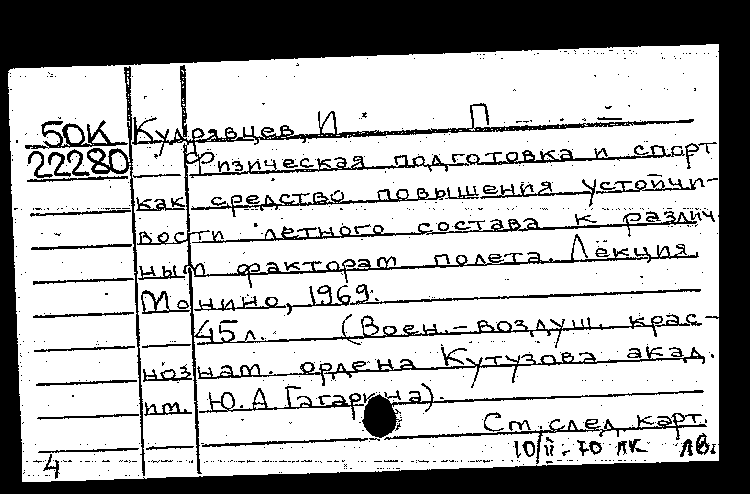 50К Кудрявцев, И П
22280 Физическая подготовка и спорт
как средство повышения устойчи-
вости летного состава к различ
ным факторам полета. Лекция.
Монино, 1969.
45л. (Воен.-воздуш. крас-
нознам. ордена Кутузова акад.
им. Ю.А Гагарина).
См. след. карт.
4 10/II-70 ЛК ЛВ.